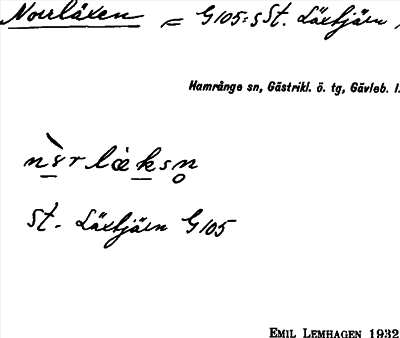 Norrläxen = G105: St. Läxtjärn
Hamrånge sn, Gästrikl. ö. tg, Gävleb. l.
St. Läxtjärn G105
EMIL LEMHAGEN 1932